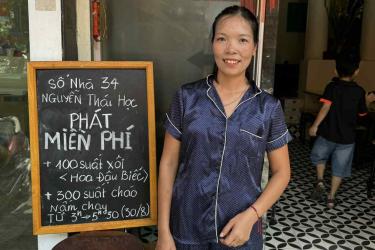 Số Nhà 34
NGUYỄN Thái Học
PHÁT
MIỄN PHÍ
+ 400 suất xôi
< Hoa Đậu Biếc>
+ 300 suất cháo
nấm chay
Từ 3h → 5h50 (30/8)